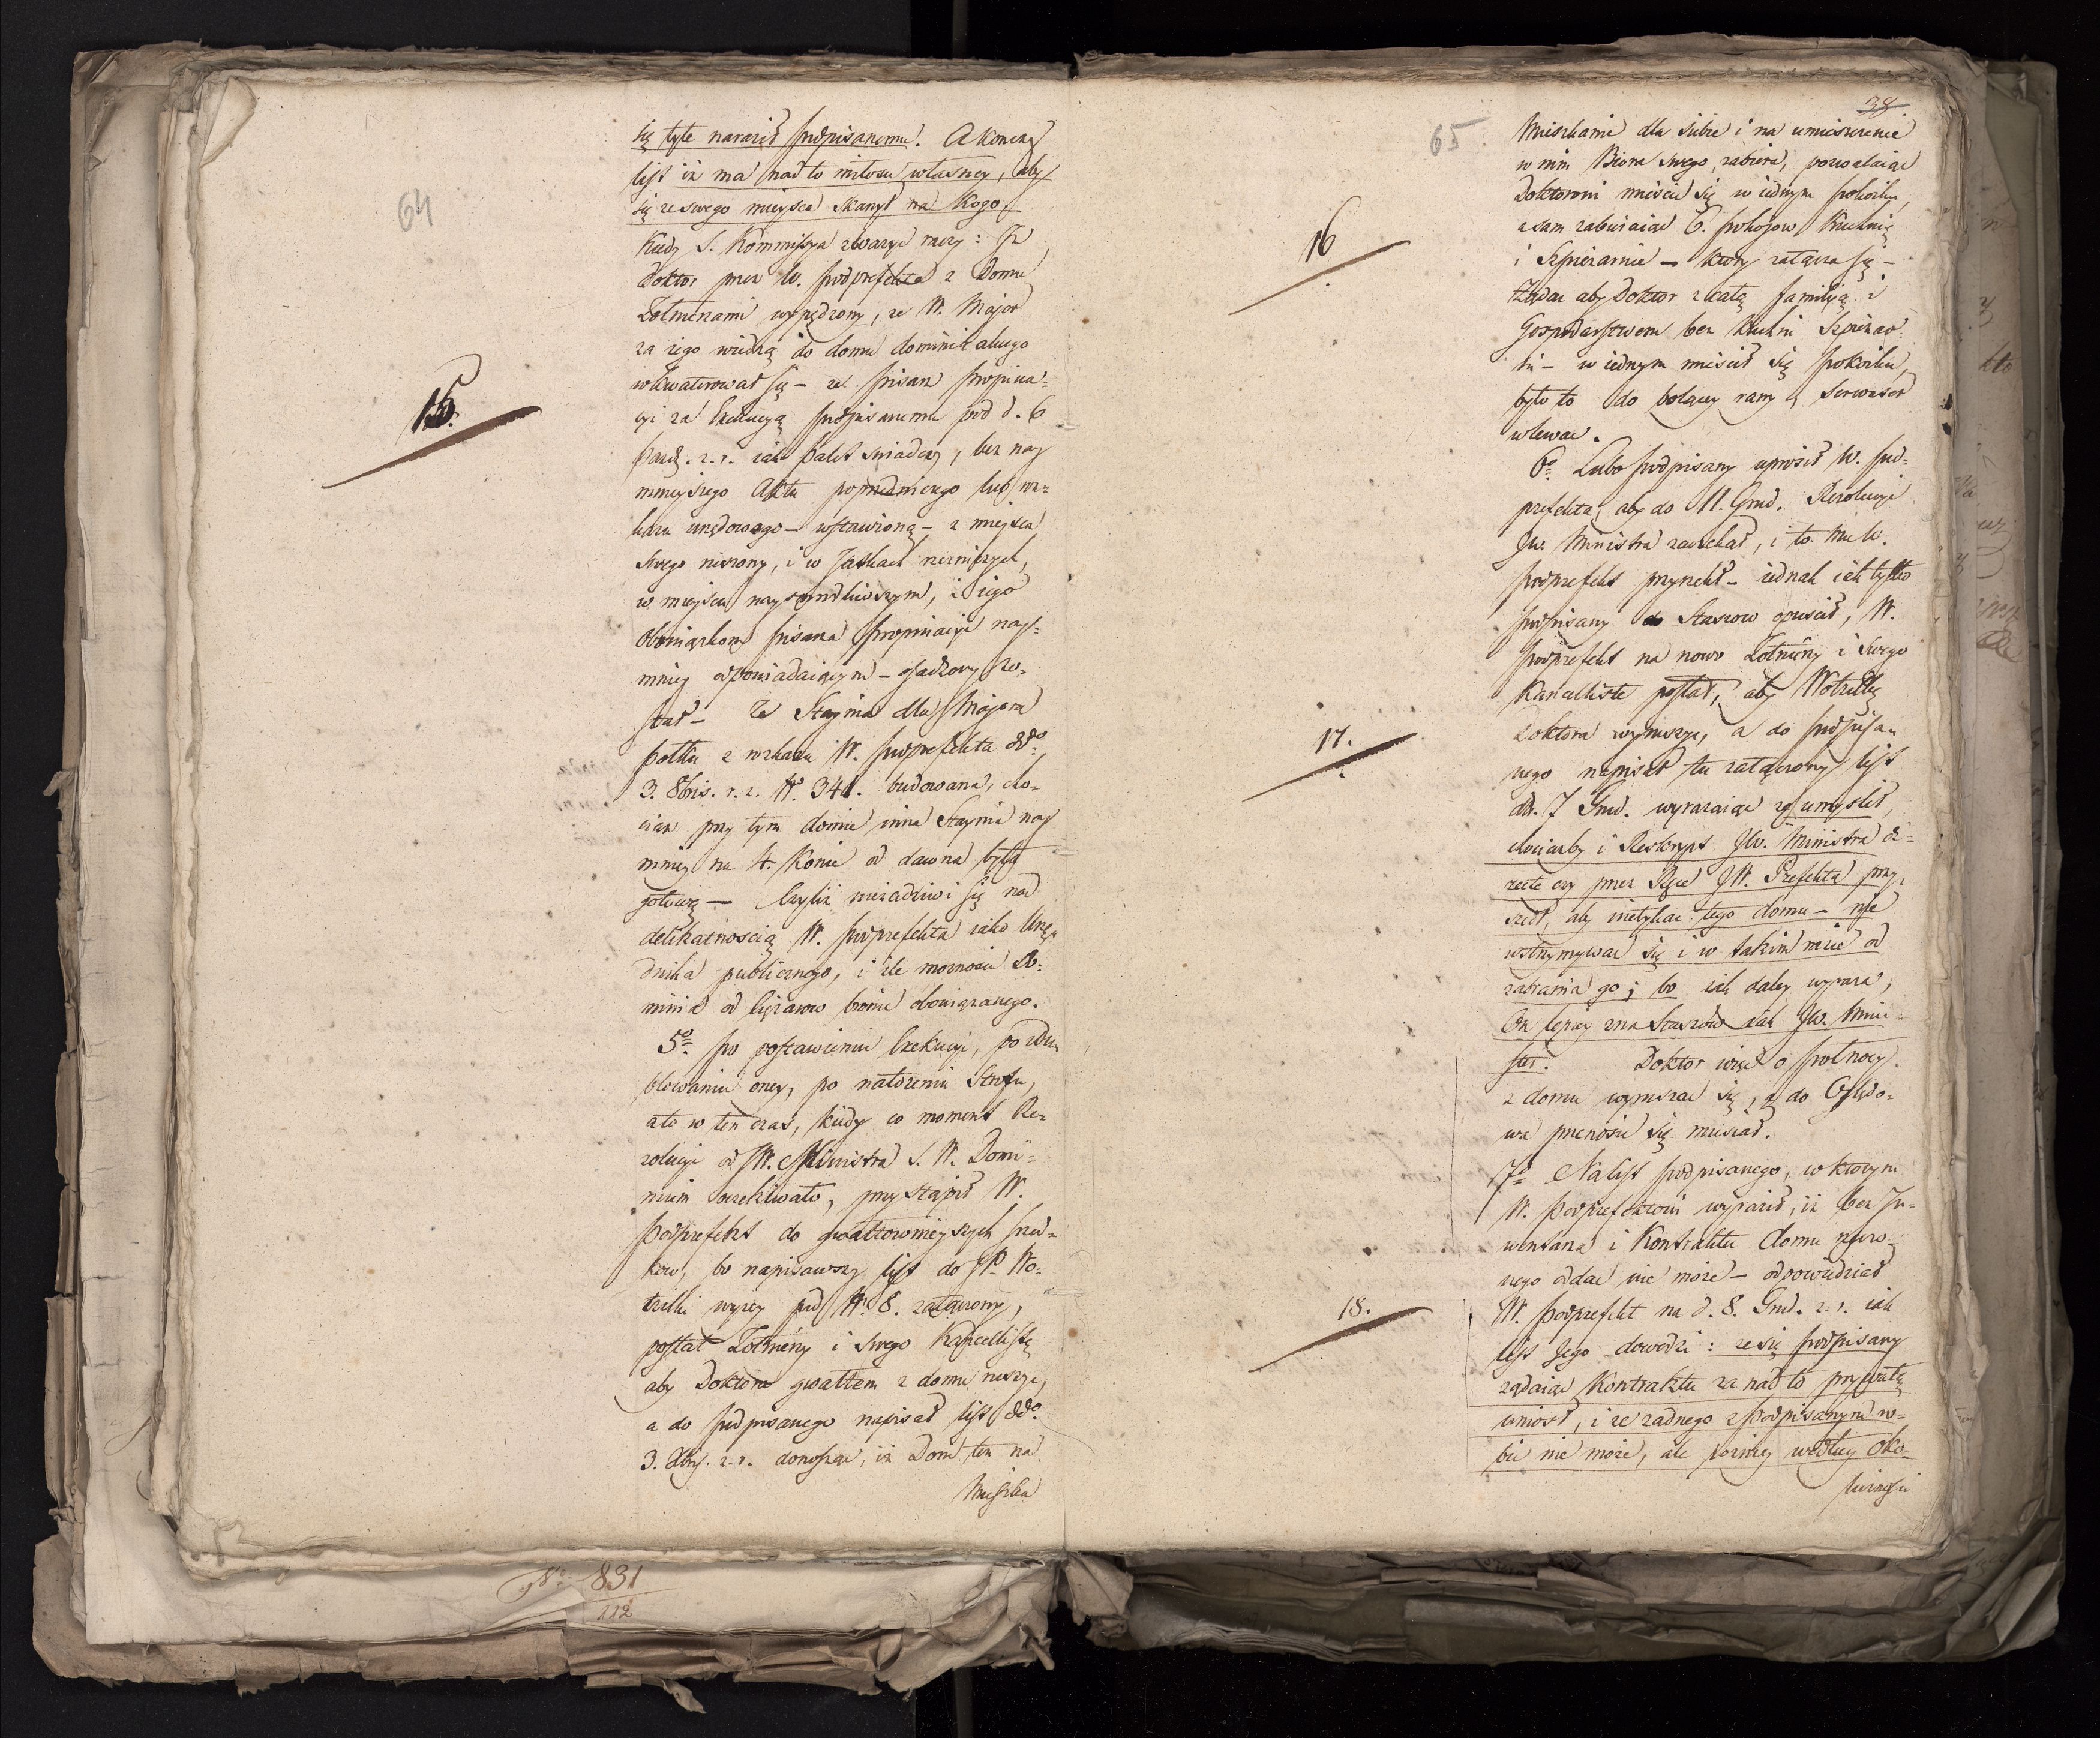 64
się tyle naraził podpisanemu. A kończy
list iż ma nadto miłosci własney, aby
się ze swego mieysca skarżył na kogo.
Kiedy S. Kommissya zważyć raczy: Iż
Doktor przez W. podprefekta z Domu
Żołnierzami wypędzony, że W. Major
za iego wiedzą do domu dominikalnego
wkwaterował się – że pisarz propina=
cyi za Exekucyą podpisanemu pod d. 6
Pazdz. r. r. iak Palet swiadczy, bez nay
mnieyszego Aktu poprzedniczego lub na=
kazu urzędowego – wstawioną – z mieysca
swego ruszony, i w Jatkach rzezniczych,
w mieyscu nayszkodliwszym, i iego
Obowiązkom pisarza propinacyi nay=
mniey odpowiadaiącym – osadzony zo=
stał – Że Staynia dla Majora
Połku z rozkazu W. podprefekta ddº
3. 8bris. r. z. N. 341. budowana, cho=
ciaż przy tym domie inna Staynia nay
mniey na 4. Konie od dawna była
gotową – Czyliż niezadziwi się nad
delikatnoscią W. podprefekta iako Urzę=
dnika publicznego, i ile moznosci Do=
minia od Ciężarow bronić obowiązanego.
15.
5º Po postawieniu Exekucyi, po zdu=
blowaniu oney, po nałożeniu Strofu,
a to w ten czas, kiedy co moment Re=
zolucyi od JW. Ministra S. W. Domi=
nium oczekiwało, przystąpił W.
Podprefekt do gwałtownieyszych srod=
kow, bo napisawszy list do JP. Wo=
tzilki wyżey pod N. 8. załączony,
posłał Żołnierzy i swego Kancellistę
aby Doktora gwałtem z domu ruszyć,
a do podpisanego napisał list ddº
3. Xbris. r. r. donosząc, iż Dom ten na
Mieszka
38
65
Mieszkanie dla siebie i na umieszczenie
w nim Biura swego zabiera, pozwalaiąc
Doktorowi miescić się w iednym pokoiku,
a sam zabieraiąc 6. pokojow Kuchnią
i Szpizarnie – który załącza się –
16
Żądać aby Doktor z całą familią i
Gospodarstwem bez Kuchni Szpizar=
ni – w iednym miescił się pokoiku,
było to do bolącey rany Serwaser
wlewać.
6º Lubo podpisany uprosił W. pod=
prefekta, aby do 11. Grud. Rezolucyi
JW. Ministra zaczekał, i to mu W.
podprefekt przyrzekł – iednak iak tylko
podpisany Staszow opuscił, W.
podprefekt na nowo Żołnierzy i swego
Kancelliste posłał, aby Wotzilkę
Doktora wyruszyć, a do podpisa=
nego napisał tu załączony list
17.
dd. 7 Grud. wyrażaiąc iż umyslił,
chociażby i Reskrypt JW. Ministra di=
recte czy przez Ręce JW. Prefekta przy=
szedł, aby nietykać tego domu – nie
wstrzymywać się i w takim razie od
zabrania go; bo iak daley wyraża,
On lepiey zna Staszów iak JW. Mini=
ster. Doktor więc o połnocy
z domu wyruszać się, a do Osędo=
wa przenosić się musiał.
7º Na list podpisanego, w ktorym
W. Podprefektowi wyraził, iż bez In=
wentarza i Kontraktu domu
nego oddać nie może – odpowiedział
18.
W. Podprefekt na d. 8. Grud. r. r. iak
list Jego dowodzi: że się podpisany
żądaiąc Kontraktu za nadto prywatą
uniosł, i że żadnego z Podpisanym ro=
bić nie może, ale poźniey według oko=
licznosci
831
112